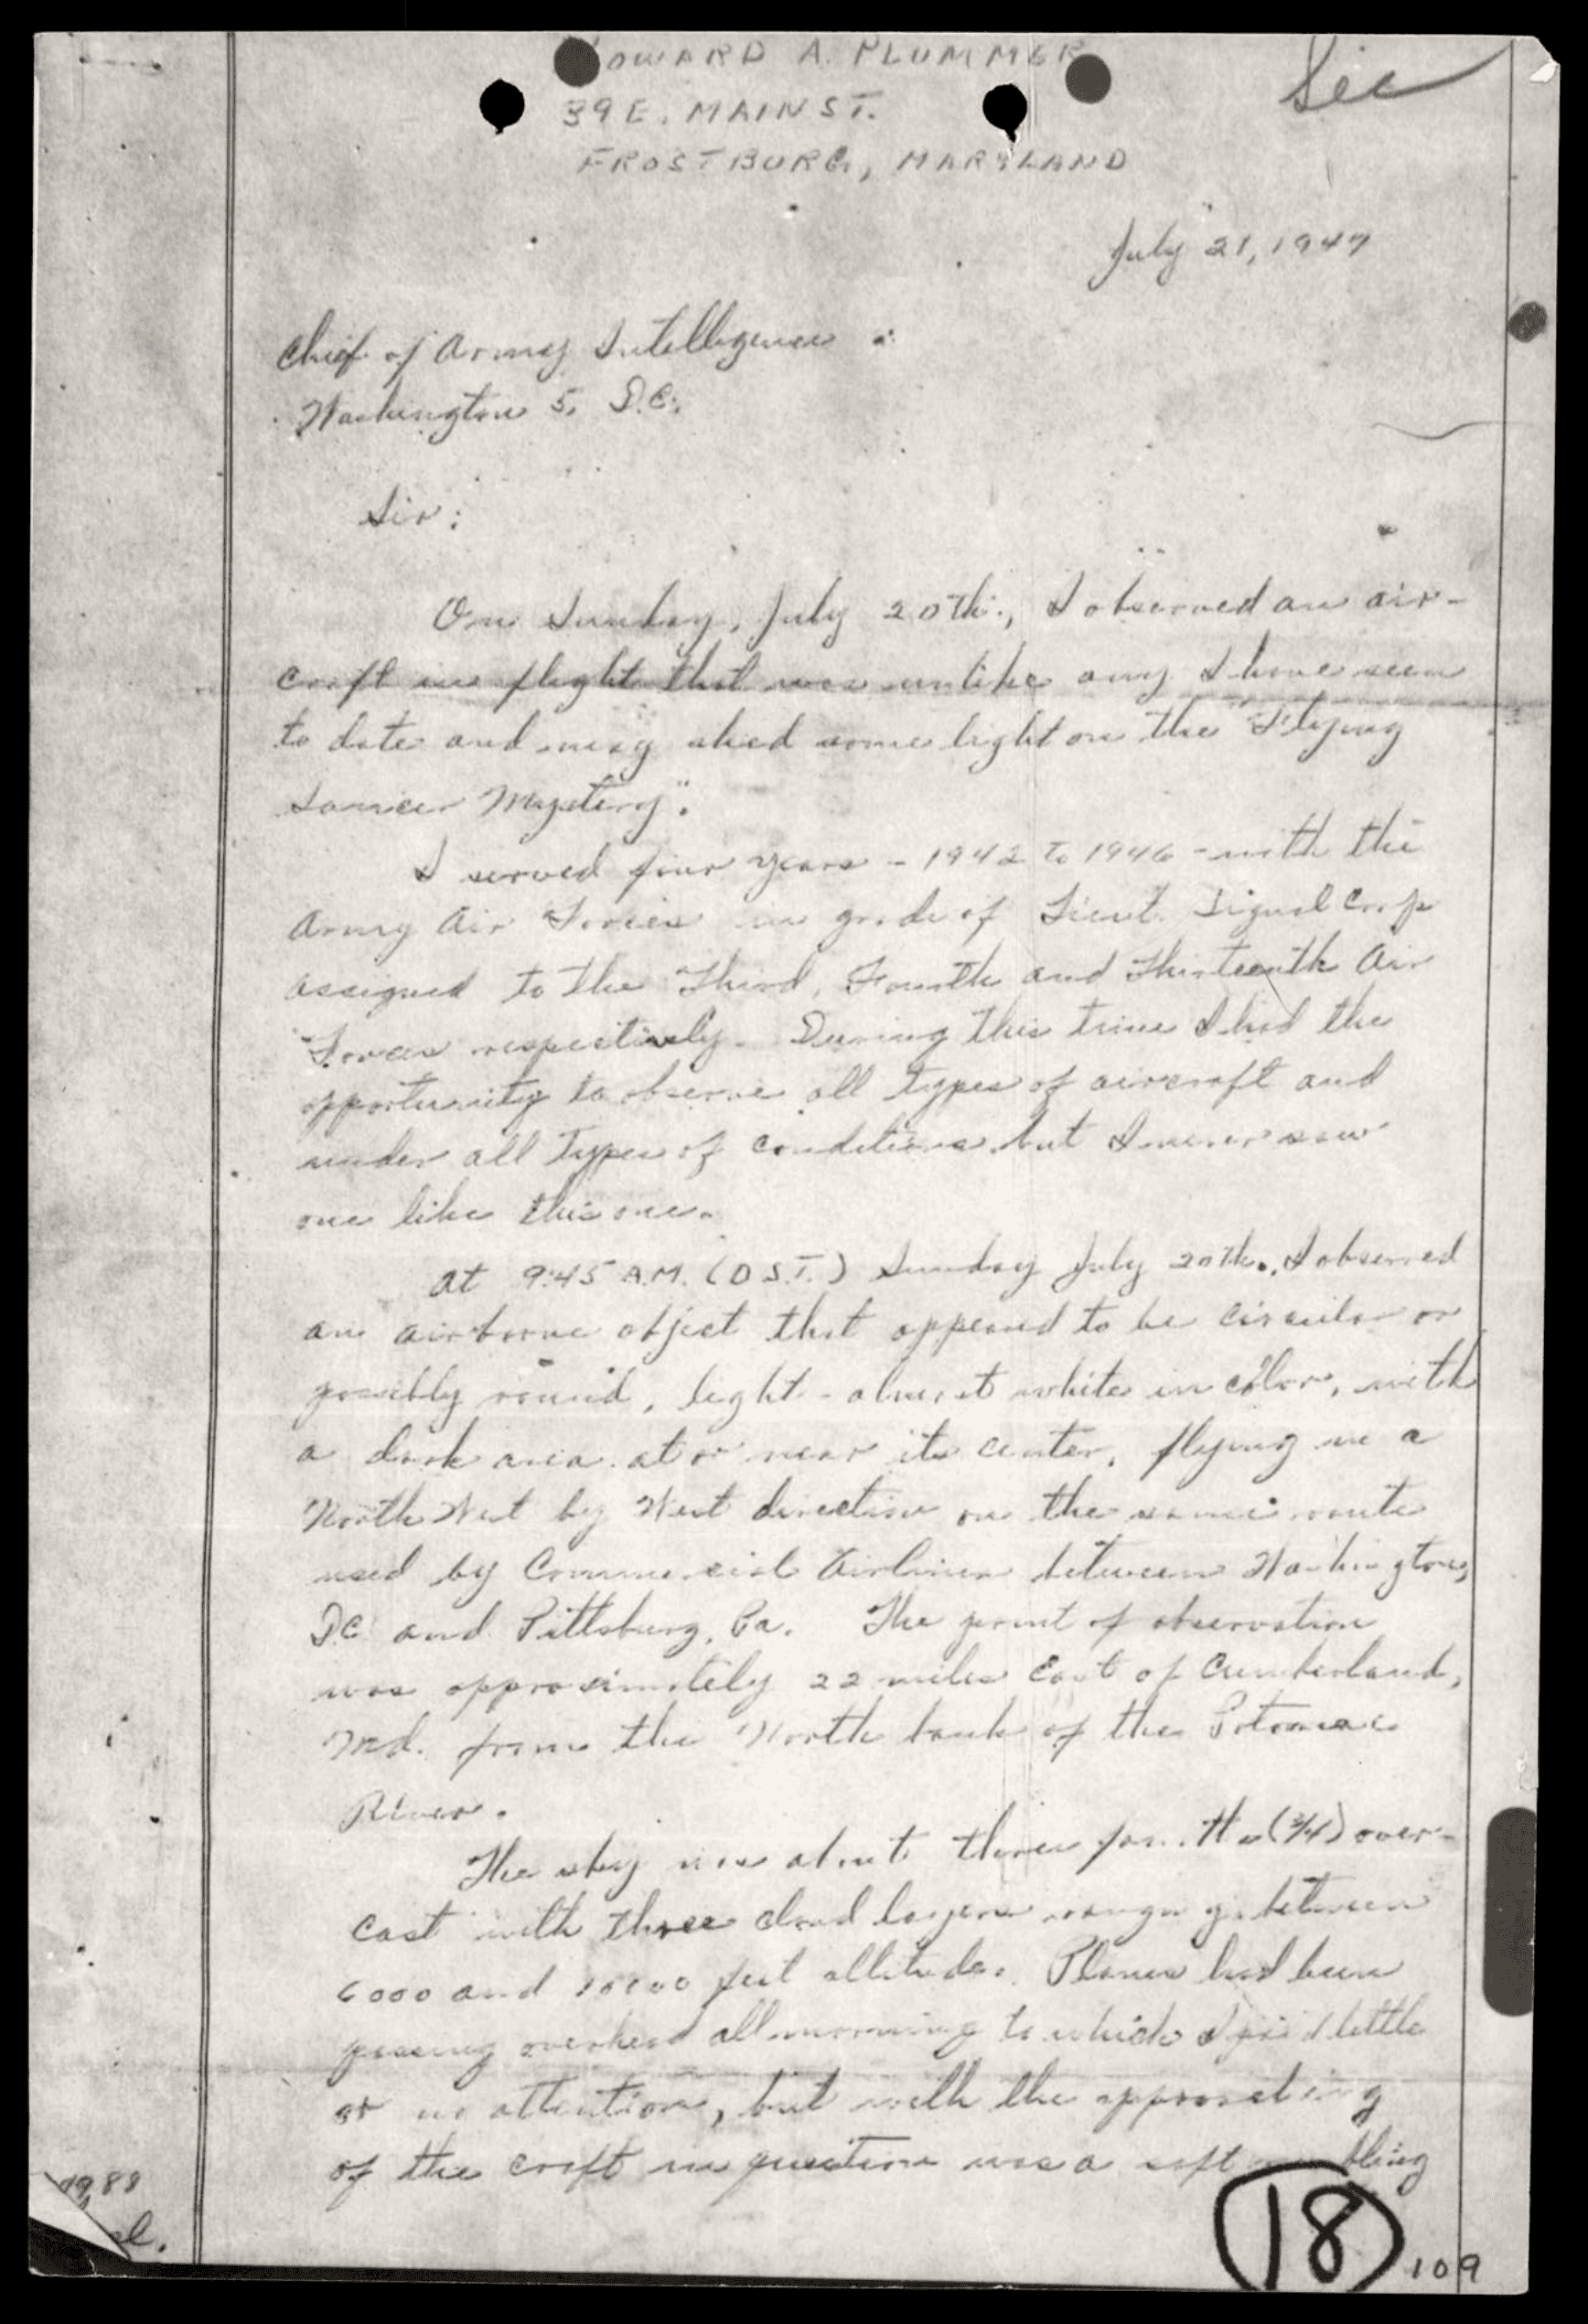 HOWARD A. PLUMMER
39 E. MAIN ST.
FROSTBURG, MARYLAND
July 21, 1947
Chief of Army Intelligence :
Washington 5, D.C.
Sir:
On Sunday, July 20th., I observed an air-
craft in flight that was unlike any I have seen
to date and may shed some light on the "Flying
Saucer Mystery".
I served four years - 1942 to 1946 - with the
Army Air Forces in grade of Lieut. Signal Corp
assigned to the Third, Fourth and Thirteenth Air
Forces respectively. During this time I had the
opportunity to observe all types of aircraft and
under all types of conditions but I never saw
one like this one.
At 9:45 A.M. (D.S.T.) Sunday July 20th., I observed
an airborne object that appeared to be circular or
possibly round, light - almost white in color, with
a dark area at or near its center, flying in a
North West by West direction on the same route
used by Commercial Airlines between Washington,
D.C. and Pittsburg, Pa. The point of observation
was approximately 22 miles East of Cumberland,
Md. from the North bank of the Potomac
River.
The sky was about three fourths (3/4) over-
cast with three cloud layers ranging between
6000 and 10000 feet altitude. Planes had been
passing overhead all morning to which I paid little
or no attention, but with the approaching
of the craft in question was a soft
18
109
1988